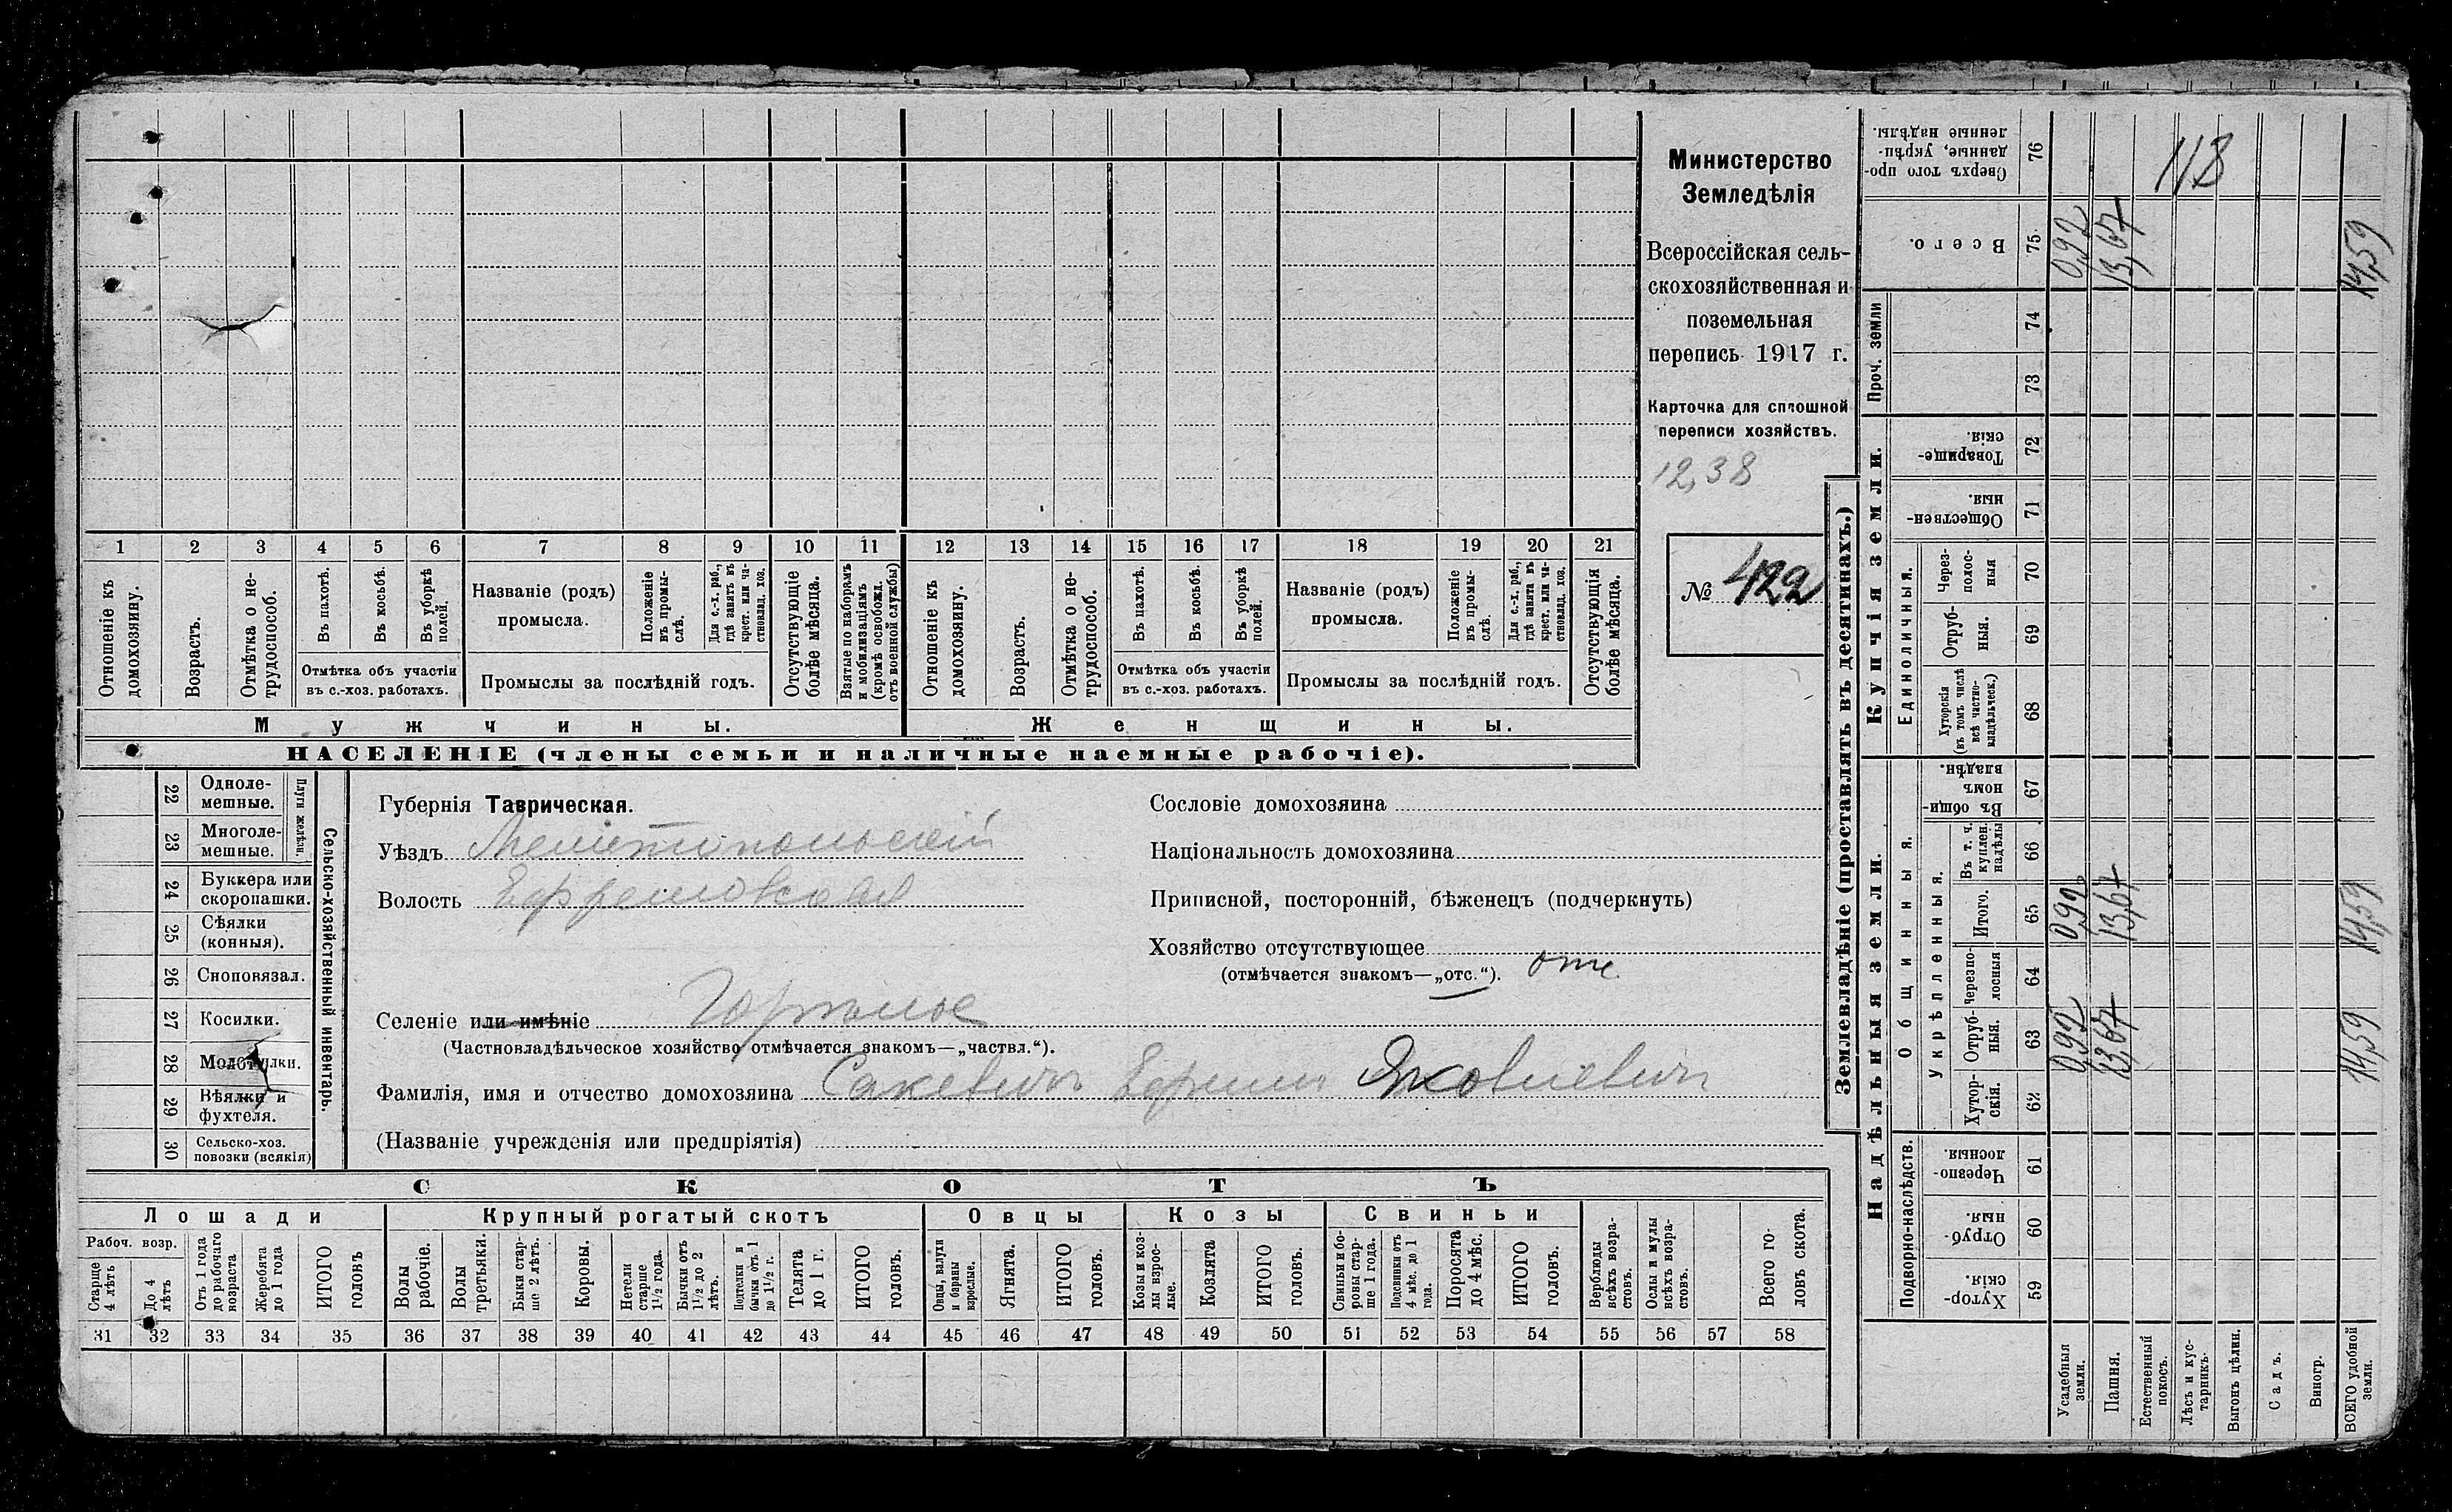 1 2 3 4 5 6 7 8 9 10 11 12 13 14 15 16 17 18 19 20 21
Отношеніе къ домохозяину.
Возрастъ.
Отмѣтка о не-
трудоспособ.
Въ пахотѣ.
Въ косьбѣ.
Въ уборкѣ
полей.
Отмѣтка объ участіи
въ с.-хоз. работахъ.
Названіе (родъ)
промысла.
Положеніе
въ промы-
слѣ.
Для с.-х. раб.,
гдѣ занятъ въ
крест. или ча-
стновлад. хоз.
Промыслы за послѣдній годъ.
Отсутствующіе
болѣе мѣсяца.
Взятые по наборамъ
и мобилизаціямъ
(кромѣ освобожд.
отъ военной службы)
Отношеніе къ
домохозяину.
Возрастъ.
Отмѣтка о не-
трудоспособ.
Въ пахотѣ.
Въ косьбѣ.
Въ уборкѣ
полей.
Отмѣтка объ участіи
въ с.-хоз. работахъ.
Названіе (родъ)
промысла.
Положеніе
въ промы-
слѣ.
Для с.-х. раб.,
гдѣ занята въ
крест. или ча-
стновлад. хоз.
Промыслы за послѣдній годъ.
Отсутствующія
болѣе мѣсяца.
Мужчины.
Женщины.
НАСЕЛЕНІЕ (члены семьи и наличные наемные рабочіе).
Министерство
Земледѣлія
Всероссійская сель-
скохозяйственная и
поземельная
перепись 1917 г.
Карточка для сплошной
переписи хозяйствъ.
12,38
№ 422
22 Одноле-
мешные.
23 Многоле-
мешные.
Плуги желѣзн.
24 Буккера или
скоропашки.
25 Сѣялки
(конныя).
26 Сноповязал.
27 Косилки.
28 Молотилки.
29 Вѣялки и
фухтеля.
30 Сельско-хоз.
повозки (всякія)
Сельско-хозяйственный инвентарь.
Губернія Таврическая.
Уѣздъ Мелитопольскій
Волость Ефремовская
Селеніе или имѣніе Горѣлое
(Частновладѣльческое хозяйство отмѣчается знакомъ—„частвл.“).
Фамилія, имя и отчество домохозяина Сакевичъ Ефимъ Яковлевичъ
(Названіе учрежденія или предпріятія)
Сословіе домохозяина
Національность домохозяина
Приписной, посторонній, бѣженецъ (подчеркнуть)
Хозяйство отсутствующее
(отмѣчается знакомъ—„отс.“). отс
СКОТЪ
Лошади
Крупный рогатый скотъ
Овцы
Козы
Свиньи
Рабоч. возр.
Старше
4 лѣтъ
До 4
лѣтъ
Отъ 1 года
до рабочаго
возраста
Жеребята
до 1 года
ИТОГО
головъ
Волы
рабочіе.
Волы
третьяки.
Быки стар-
ше 2 лѣтъ.
Коровы.
Нетели
старше
1½ года.
Бычки отъ
1½ до 2
лѣтъ.
Подтелки и
бычки отъ 1
до 1½ г.
Телята
до 1 г.
ИТОГО
головъ.
Овцы, валухи
и бараны
взрослые.
Ягнята.
ИТОГО
головъ.
Козы и коз-
лы взрос-
лые.
Козлята
ИТОГО
головъ.
Свиньи и бо-
ровы стар-
ше 1 года.
Подсвинки отъ
4 мѣс. до 1
года.
Поросята
до 4 мѣс.
ИТОГО
головъ.
Верблюды
всѣхъ возра-
стовъ.
Ослы и мулы
всѣхъ возра-
стовъ.
Всего го-
ловъ скота.
31 32 33 34 35 36 37 38 39 40 41 42 43 44 45 46 47 48 49 50 51 52 53 54 55 56 57 58
Землевладѣніе (проставлять въ десятинахъ.)
Надѣльныя земли.
Купчія земли.
Проч. земли
Подворно-наслѣдств.
Общинныя.
Укрѣпленныя.
Единоличныя.
Хутор-
скія.
59
Отруб-
ныя.
60
Черезпо-
лосныя.
61
Хутор-
скія.
62
Отруб-
ныя.
63
0,92
13,67
14,59
Черезпо-
лосныя
64
Итого.
65
0,92
13,67
14,59
Въ т. ч.
куплен.
надѣлы
66
Въ общин-
номъ
владѣн.
67
Хуторскія
(въ томъ числѣ
всѣ частно-
владѣльческ.)
68
Отруб-
ныя.
69
Через-
полос-
ныя
70
Обществен-
ныя.
71
Товарище-
скія.
72
73
74
Всего.
75
0,92
13,67
14,59
Сверхъ того про-
данные, укрѣп-
ленные надѣлы.
76
118
Усадебныя
земли.
Пашня.
Естественный
покосъ.
Лѣсъ и кус-
тарникъ.
Выгонъ цѣлин.
Садъ.
Виногр.
ВСЕГО удобной
земли.